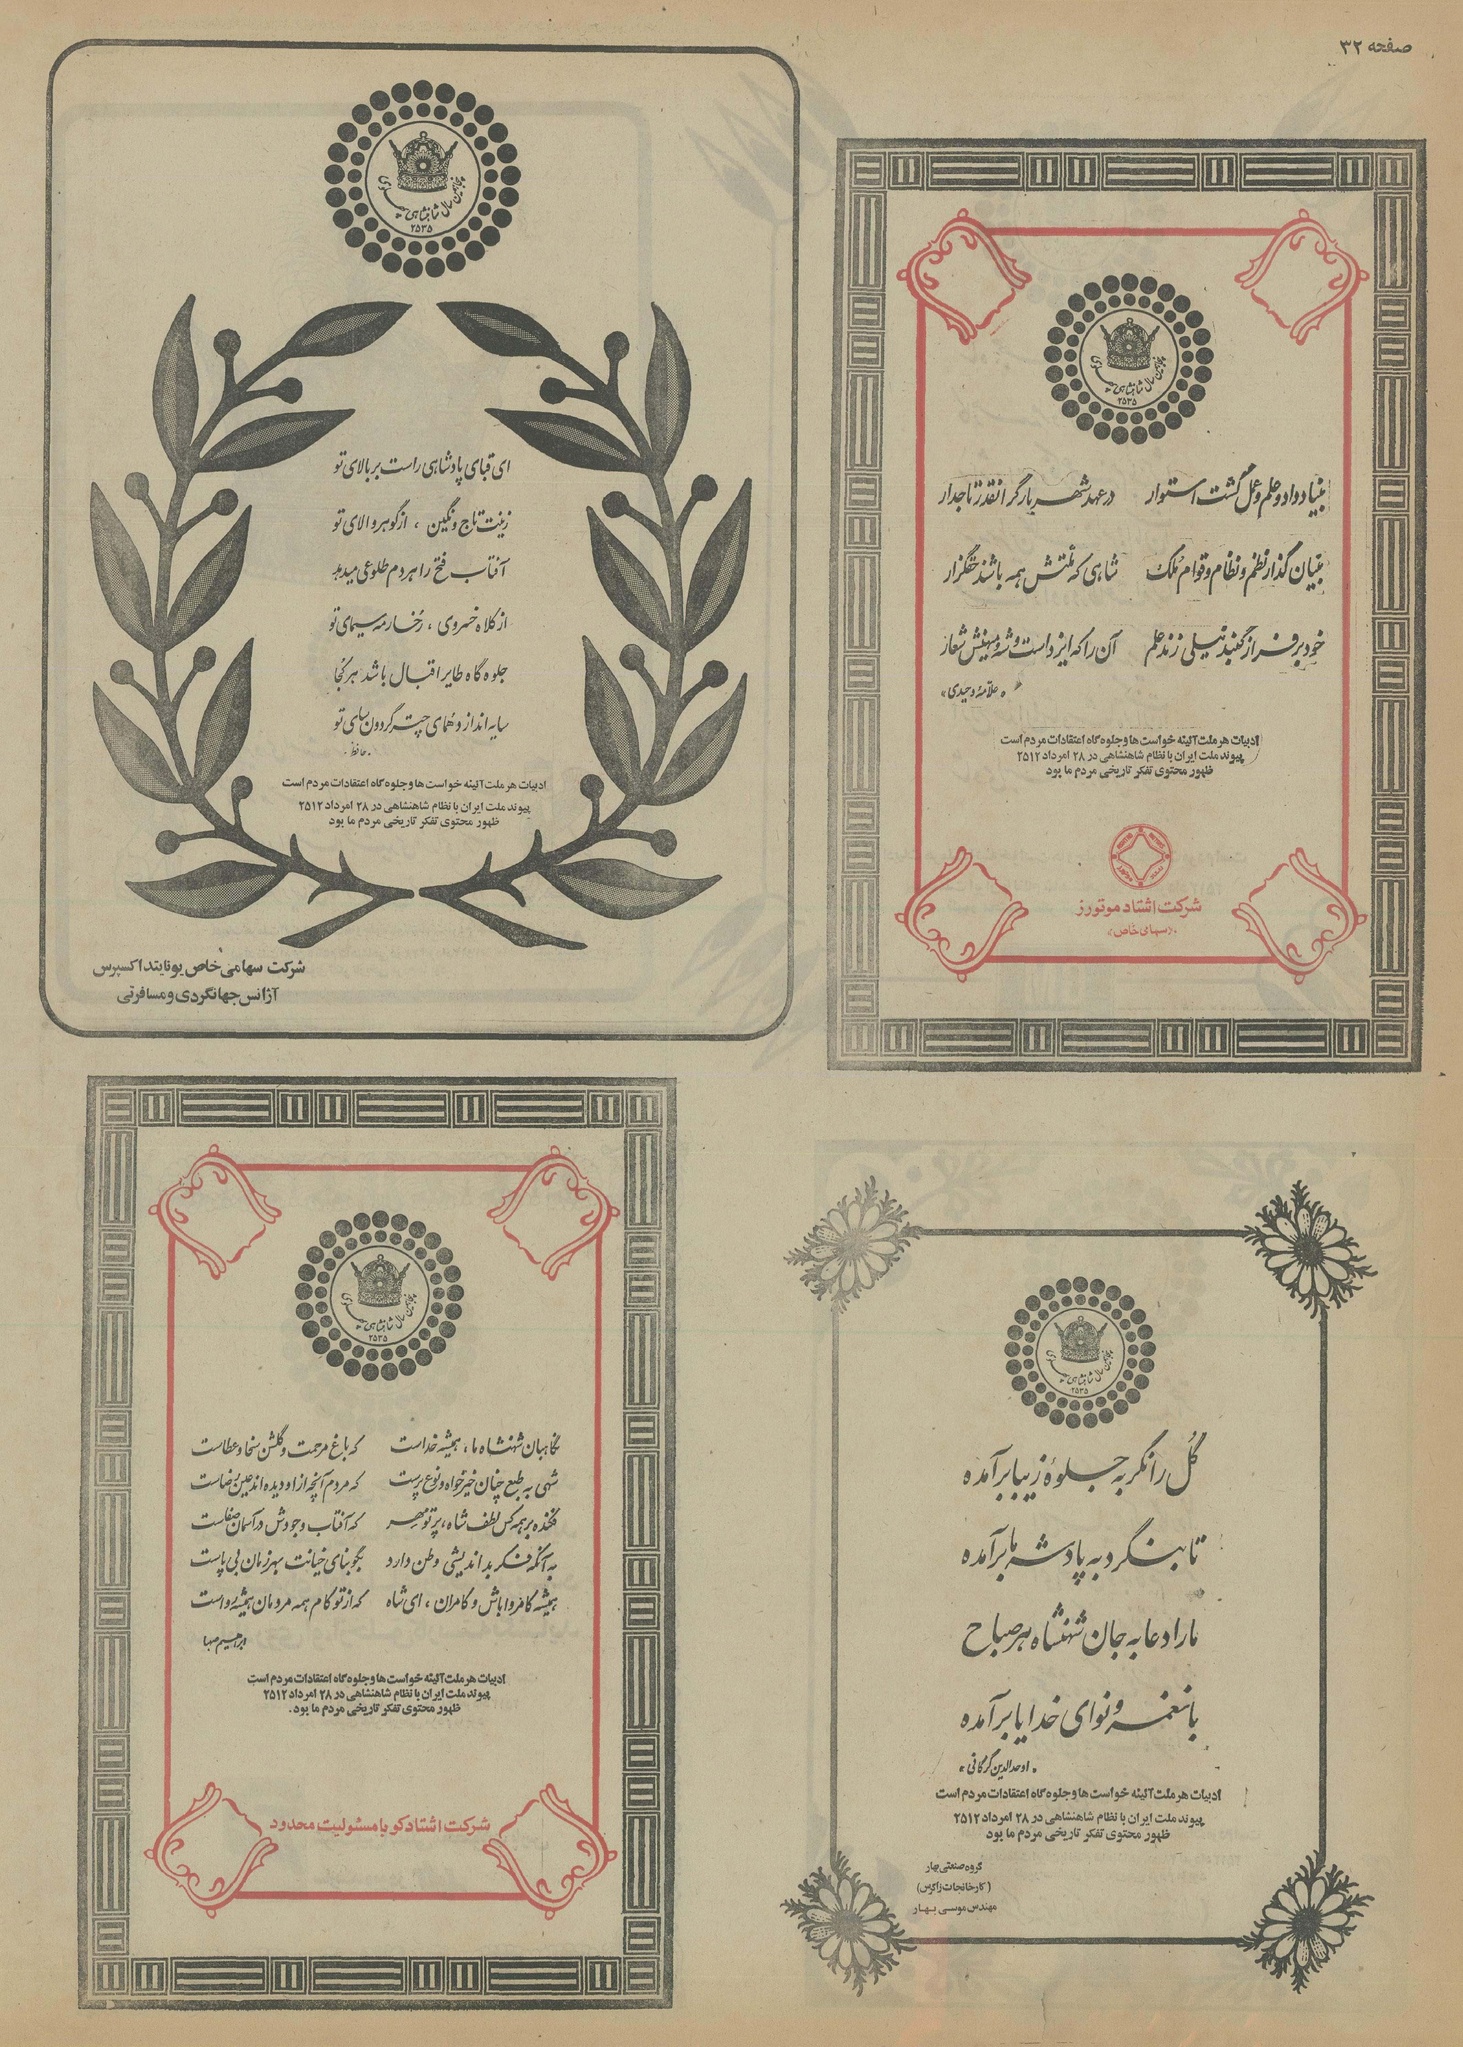 صفحه ۳۲
پنجاهمین سال شاهنشاهی پهلوی
۲۵۳۵
بنیاد داد و علم و عمل گشت استوار در عهد شهریار گرانقدر تاجدار
بنیان گذار نظم و نظام و قوام ملک شاهی که ملتش همه باشند حقگزار
خود بر فراز گنبد نیلی زند علم آن را که ایزد است و شه و میهنش شعار
«علامه وحیدی»
ادبیات هر ملت آئینه خواست ها و جلوه گاه اعتقادات مردم است
پیوند ملت ایران با نظام شاهنشاهی در ۲۸ امرداد ۲۵۱۲
ظهور محتوی تفکر تاریخی مردم ما بود
شرکت اشتاد موتورز
«سهامی خاص»
پنجاهمین سال شاهنشاهی پهلوی
۲۵۳۵
ای قبای پادشاهی راست بر بالای تو
زینت تاج و نگین ، از گوهر والای تو
آفتاب فتح را هر دم طلوعی میدهد
از کلاه خسروی ، رخسار مه سیمای تو
جلوه گاه طایر اقبال باشد هر کجا
سایه اندازد همای چتر گردون سای تو
. حافظ .
ادبیات هر ملت آئینه خواست ها و جلوه گاه اعتقادات مردم است
پیوند ملت ایران با نظام شاهنشاهی در ۲۸ امرداد ۲۵۱۲
ظهور محتوی تفکر تاریخی مردم ما بود
شرکت سهامی خاص یونایتد اکسپرس
آژانس جهانگردی و مسافرتی
پنجاهمین سال شاهنشاهی پهلوی
۲۵۳۵
گل را نگر به جلوهٔ زیبا برآمده
تا بنگرد به پادشه ما برآمده
ما را دعا به جان شهنشاه هر صباح
با نغمه و نوای خدایا برآمده
« اوحدالدین گرگانی »
ادبیات هر ملت آئینه خواست ها و جلوه گاه اعتقادات مردم است
پیوند ملت ایران با نظام شاهنشاهی در ۲۸ امرداد ۲۵۱۲
ظهور محتوی تفکر تاریخی مردم ما بود
گروه صنعتی بهار
(کارخانجات زاگرس)
مهندس موسی بهار
پنجاهمین سال شاهنشاهی پهلوی
۲۵۳۵
نگاهبان شهنشاه ما ، همیشه خداست که باغ مرحمت و گلشن سخا و عطاست
شهی به طبع چنان خیرخواه و نوع پرست که مردم آنچه از او دیده اند عین رضاست
فکنده بر همه کس لطف شاه ، پرتو مهر که آفتاب وجودش در آسمان صفاست
به آنکه فکر بد اندیشی وطن دارد بگو بنای خیانت بهر زمان بی پاست
همیشه کامروا باش و کامران ، ای شاه که از تو کام همه مردمان همیشه رواست
ابراهیم صهبا
ادبیات هر ملت آئینه خواست ها و جلوه گاه اعتقادات مردم است
پیوند ملت ایران با نظام شاهنشاهی در ۲۸ امرداد ۲۵۱۲
ظهور محتوی تفکر تاریخی مردم ما بود.
شرکت اشتاد کو با مسئولیت محدود